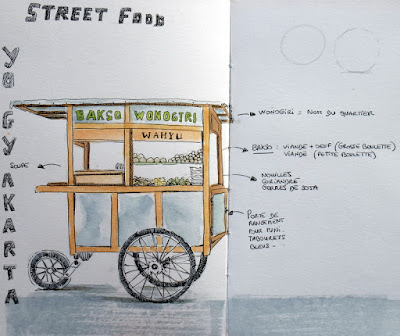 STREET FOOD
YOGYAKARTA
BAKSO WONOGIRI
WAHYU
SOUPE
WONOGIRI = NOM DU QUARTIER
BAKSO : VIANDE + OEUF (GROSSE BOULETTE)
VIANDE (PETITE BOULETTE)
NOUILLES
CORIANDRE
GERMES DE SOJA
PORTE DE
RANGEMENT
POUR MINI
TABOURETS
BLEUS